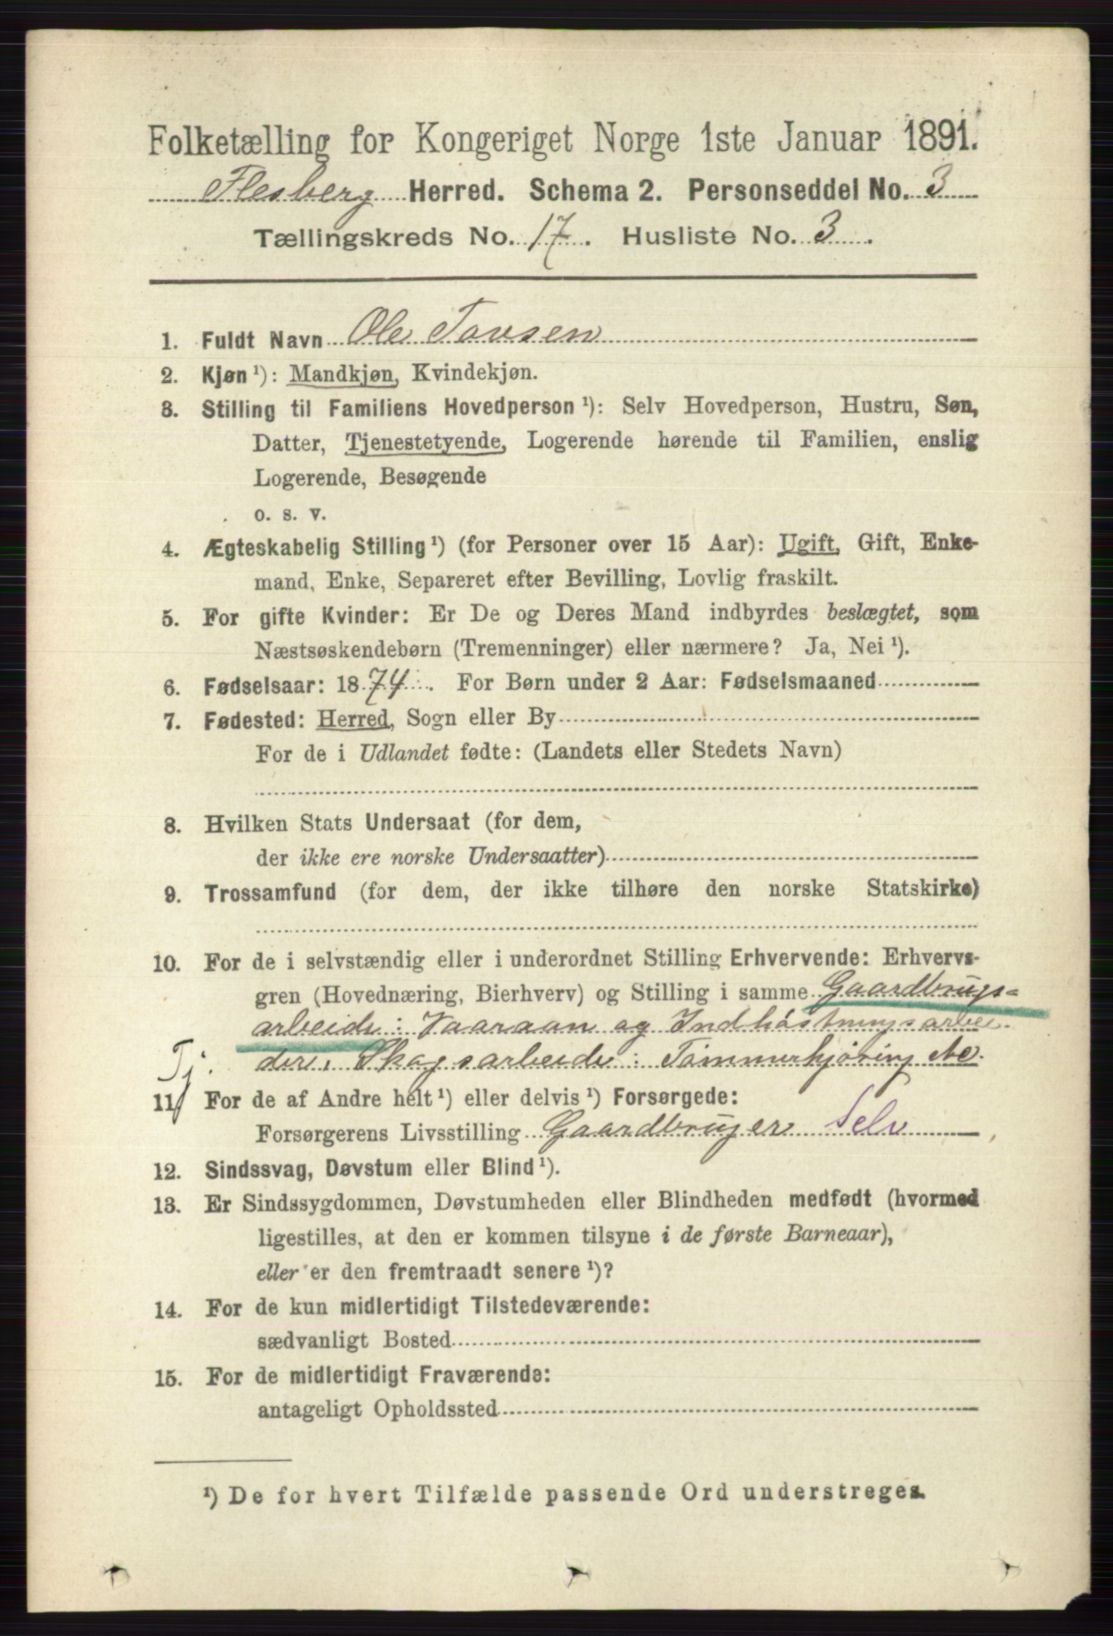 Folketælling for Kongeriget Norge 1ste Januar 1891.
Flesberg Herred. Schema 2. Personseddel No. 3
Tællingskreds No. 17. Husliste No. 3.
1. Fuldt Navn Ole Tovsen
2. Kjøn ¹): Mandkjøn, Kvindekjøn.
3. Stilling til Familiens Hovedperson ¹): Selv Hovedperson, Hustru, Søn,
Datter, Tjenestetyende, Logerende hørende til Familien, enslig
Logerende, Besøgende
o. s. v.
4. Ægteskabelig Stilling ¹) (for Personer over 15 Aar): Ugift, Gift, Enke-
mand, Enke, Separeret efter Bevilling, Lovlig fraskilt.
5. For gifte Kvinder: Er De og Deres Mand indbyrdes beslægtet, som
Næstsøskendebørn (Tremenninger) eller nærmere? Ja, Nei ¹).
6. Fødselsaar: 1874. For Børn under 2 Aar: Fødselsmaaned
7. Fødested: Herred, Sogn eller By
For de i Udlandet fødte: (Landets eller Stedets Navn)
8. Hvilken Stats Undersaat (for dem,
der ikke ere norske Undersaatter)
9. Trossamfund (for dem, der ikke tilhøre den norske Statskirke)
10. For de i selvstændig eller i underordnet Stilling Erhvervende: Erhvervs-
gren (Hovednæring, Bierhverv) og Stilling i samme Gaardbrugs=
arbeide: Vaaraan og Indhøstningsarbei-
Tj. der, Skogsarbeide: Tømmerkjøring &c.
11. For de af Andre helt ¹) eller delvis ¹) Forsørgede:
Forsørgerens Livsstilling Gaardbruger Selv
12. Sindssvag, Døvstum eller Blind ¹).
13. Er Sindssygdommen, Døvstumheden eller Blindheden medfødt (hvormed
ligestilles, at den er kommen tilsyne i de første Barneaar),
eller er den fremtraadt senere ¹)?
14. For de kun midlertidigt Tilstedeværende:
sædvanligt Bosted
15. For de midlertidigt Fraværende:
antageligt Opholdssted
¹) De for hvert Tilfælde passende Ord understreges.